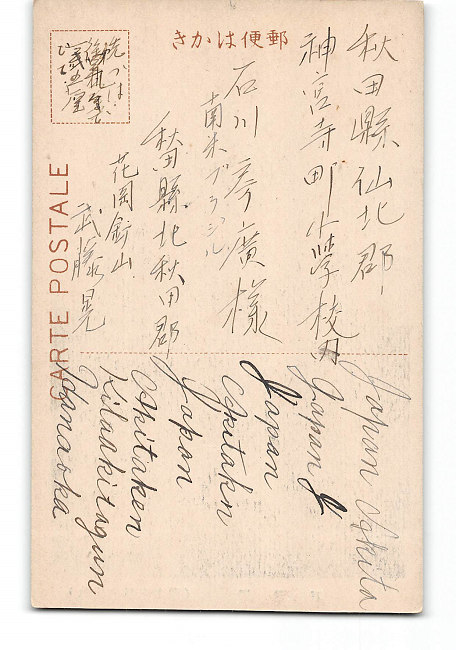 きかは便郵
CARTE POSTALE
秋田縣仙北郡
神宮寺町小学校内
石川孝廣様
南米ブラジル
秋田縣北秋田郡
花岡鉱山
武藤晃
Japan Akita
Japan J
Japan
Akitakn
Japan
Akitaken
Kitaakitagun
Hanaoka